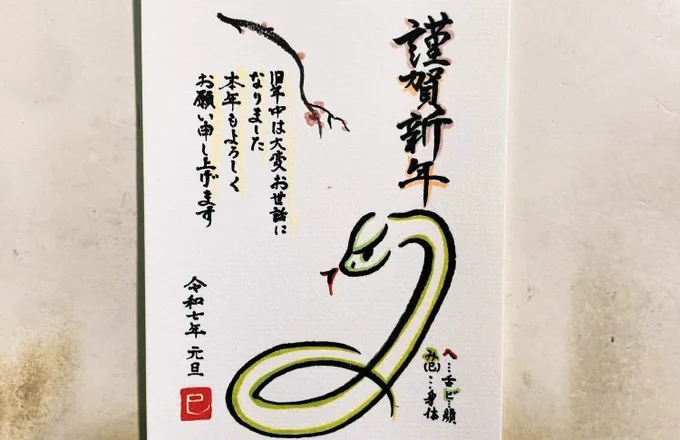 謹賀新年
旧年中は大変お世話に
なりました
本年もよろしく
お願い申し上げます
令和七年 元旦
巳
ヘ…舌 ビ…顔
み(巳)…身体